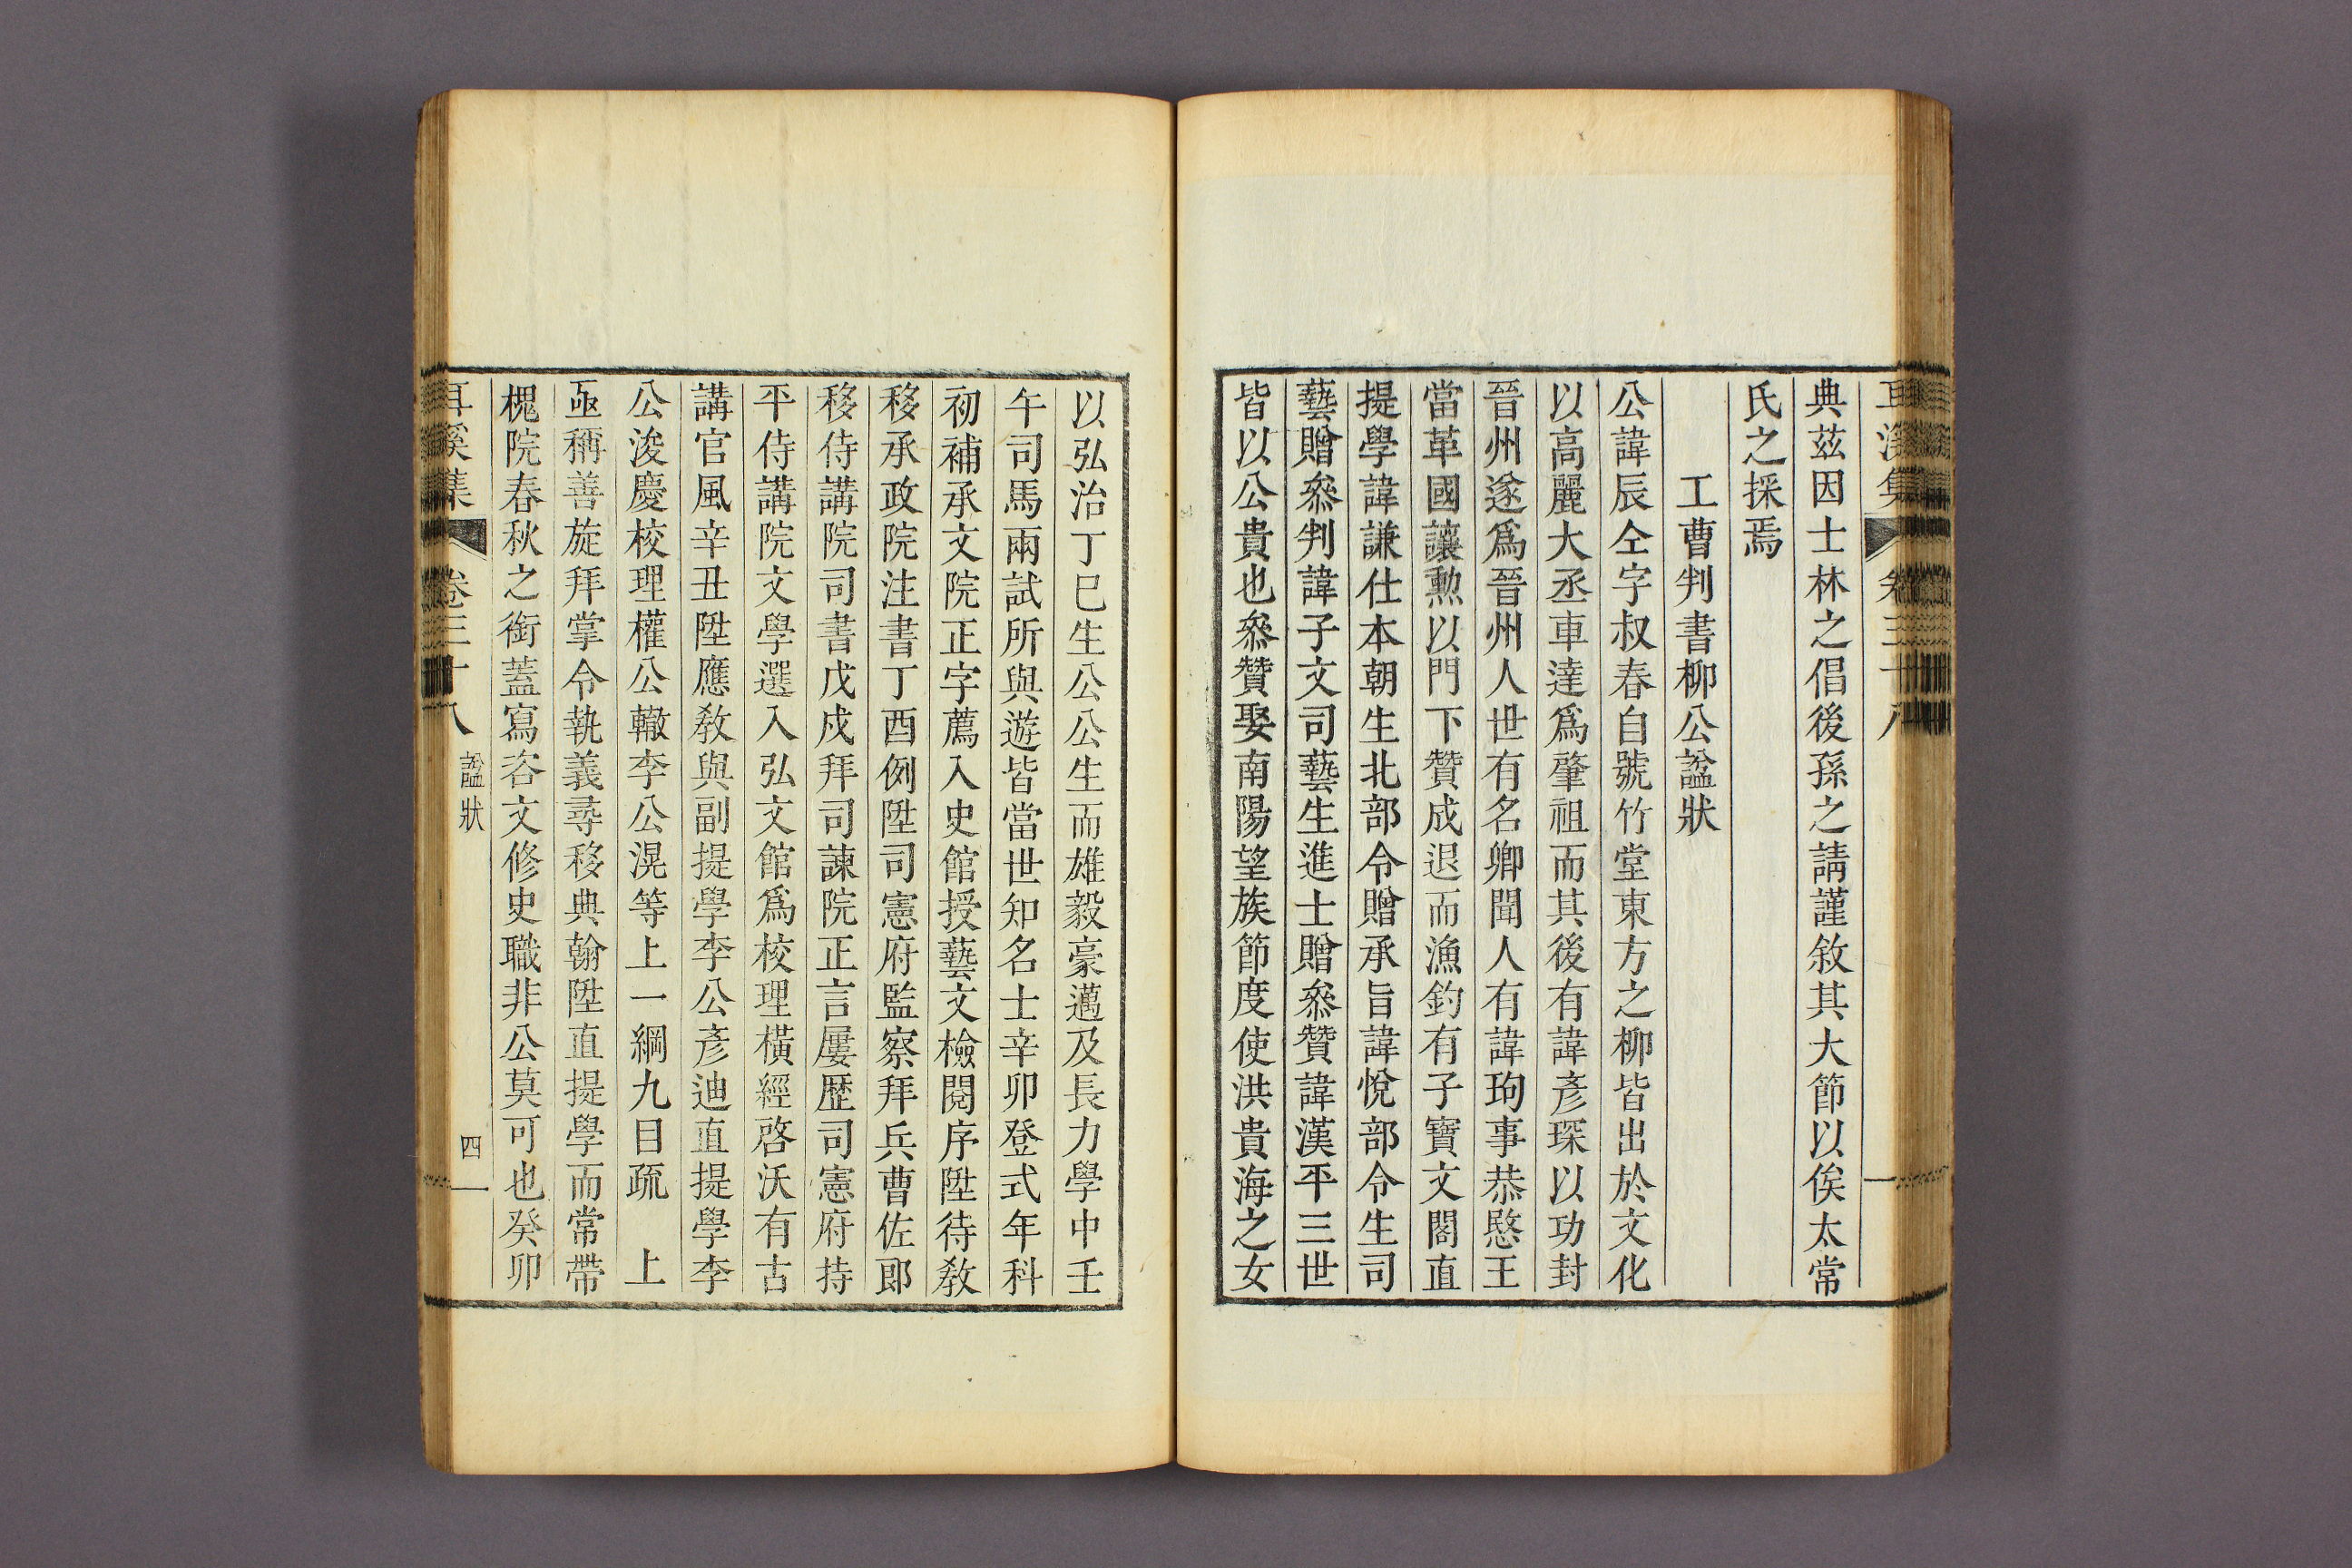 耳溪集 卷三十八
典茲因士林之倡後孫之請謹敘其大節以俟太常
氏之採焉
工曹判書柳公諡狀
公諱辰仝字叔春自號竹堂東方之柳皆出於文化
以高麗大丞車達爲肇祖而其後有諱彥琛以功封
晉州遂爲晉州人世有名卿聞人有諱珣事恭愍王
當革國讓勲以門下贊成退而漁釣有子寶文閣直
提學諱謙仕本朝生北部令贈承旨諱悅部令生司
藝贈叅判諱子文司藝生進士贈叅贊諱漢平三世
皆以公貴也叅贊娶南陽望族節度使洪貴海之女
以弘治丁巳生公公生而雄毅豪邁及長力學中壬
午司馬兩試所與遊皆當世知名士辛卯登式年科
初補承文院正字薦入史館授藝文檢閱序陞待敎
移承政院注書丁酉例陞司憲府監察拜兵曹佐郞
移侍講院司書戊戍拜司諫院正言屢歷司憲府持
平侍講院文學選入弘文館爲校理橫經啓沃有古
講官風辛丑陞應敎與副提學李公彥迪直提學李
公浚慶校理權公轍李公滉等上一綱九目疏　上
亟稱善旋拜掌令執義尋移典翰陞直提學而常帶
槐院春秋之銜蓋寫咨文修史職非公莫可也癸卯
耳溪集 卷三十八 諡狀 四